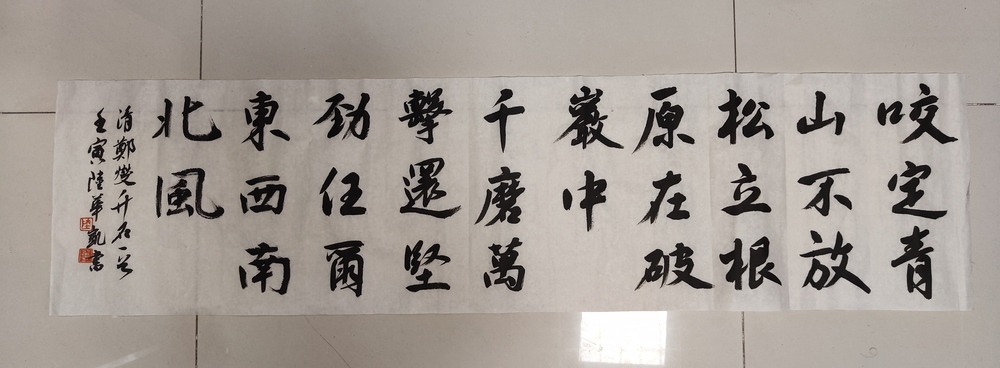 咬定青
山不放
松立根
原在破
巖中
千磨萬
擊還堅
勁任爾
東西南
北風
清鄭燮竹石一首
壬寅陸華凱書